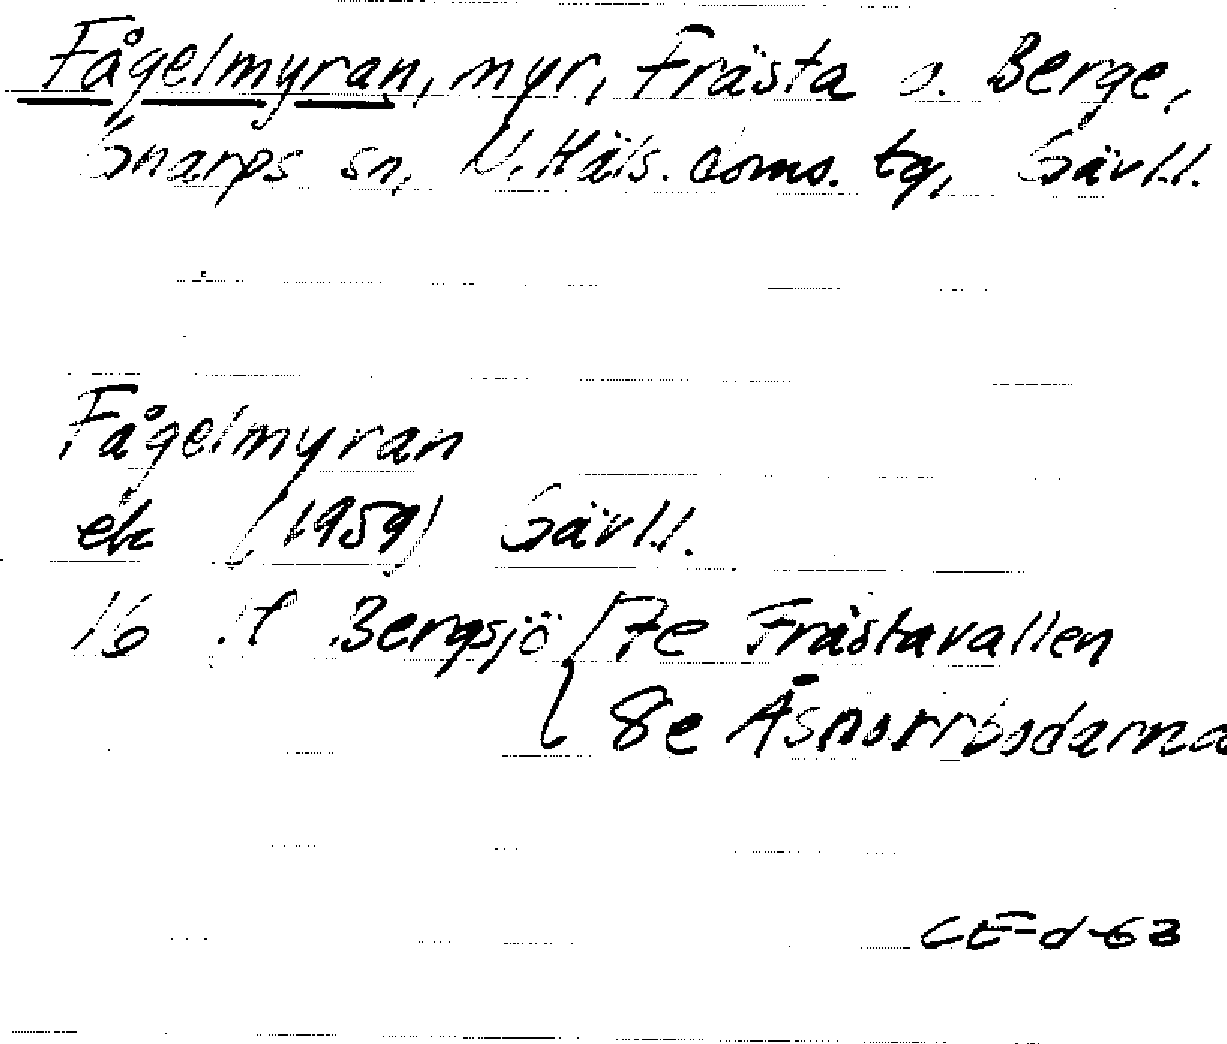 Fågelmyran, myr, Frästa o. Berge,
Gnarps sn, N. Häls. doms. tg, Gävl.l.
Fågelmyran
ek (1959) Gävl.l.
16 H Bergsjö 7e Frästavallen
8e Åsnorrbodarna
CE-d-63